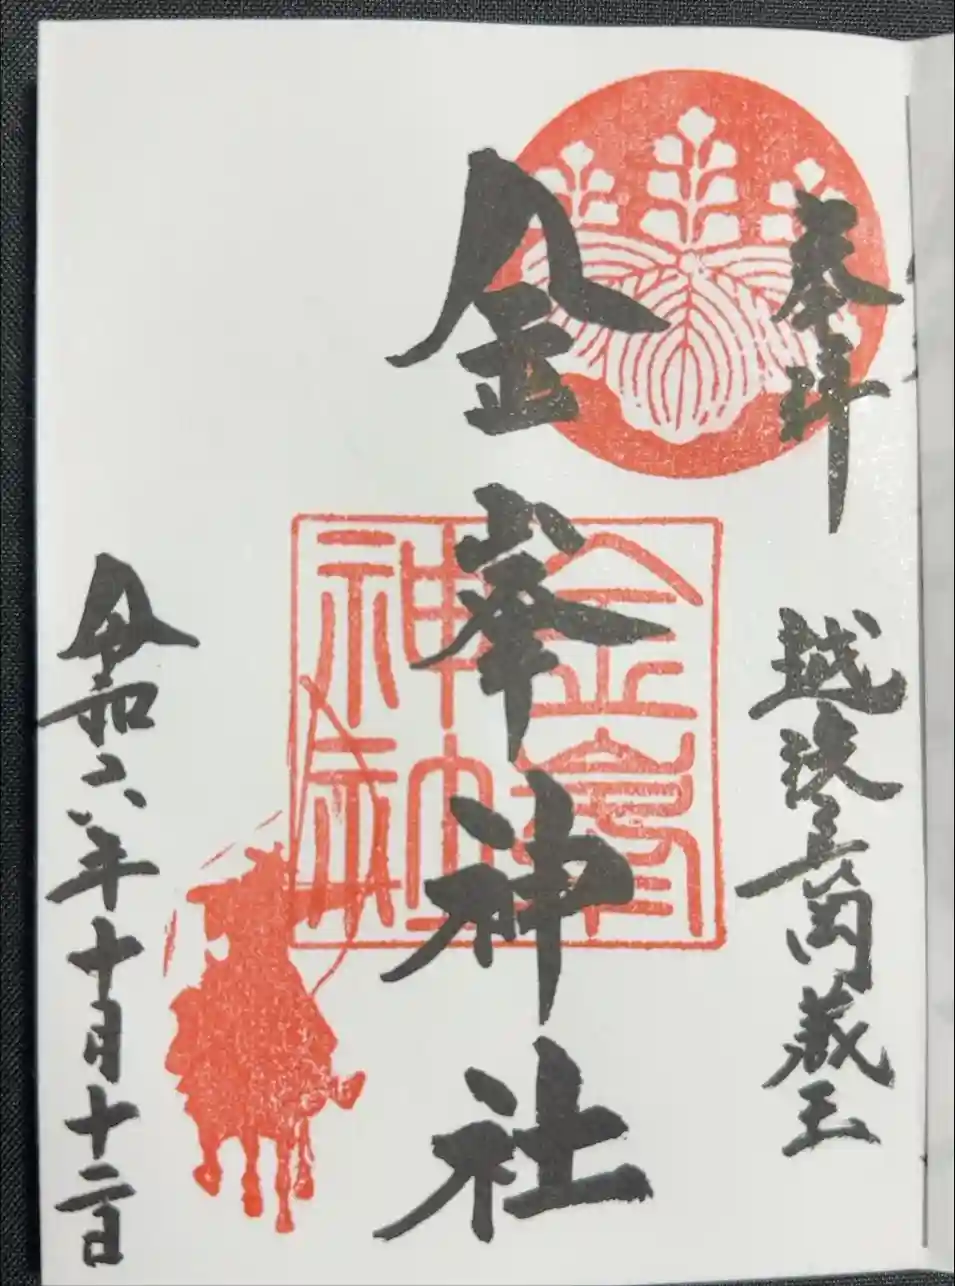 奉拝
越後長岡蔵王
金峯神社
金峯
神社
令和六年十月十二日